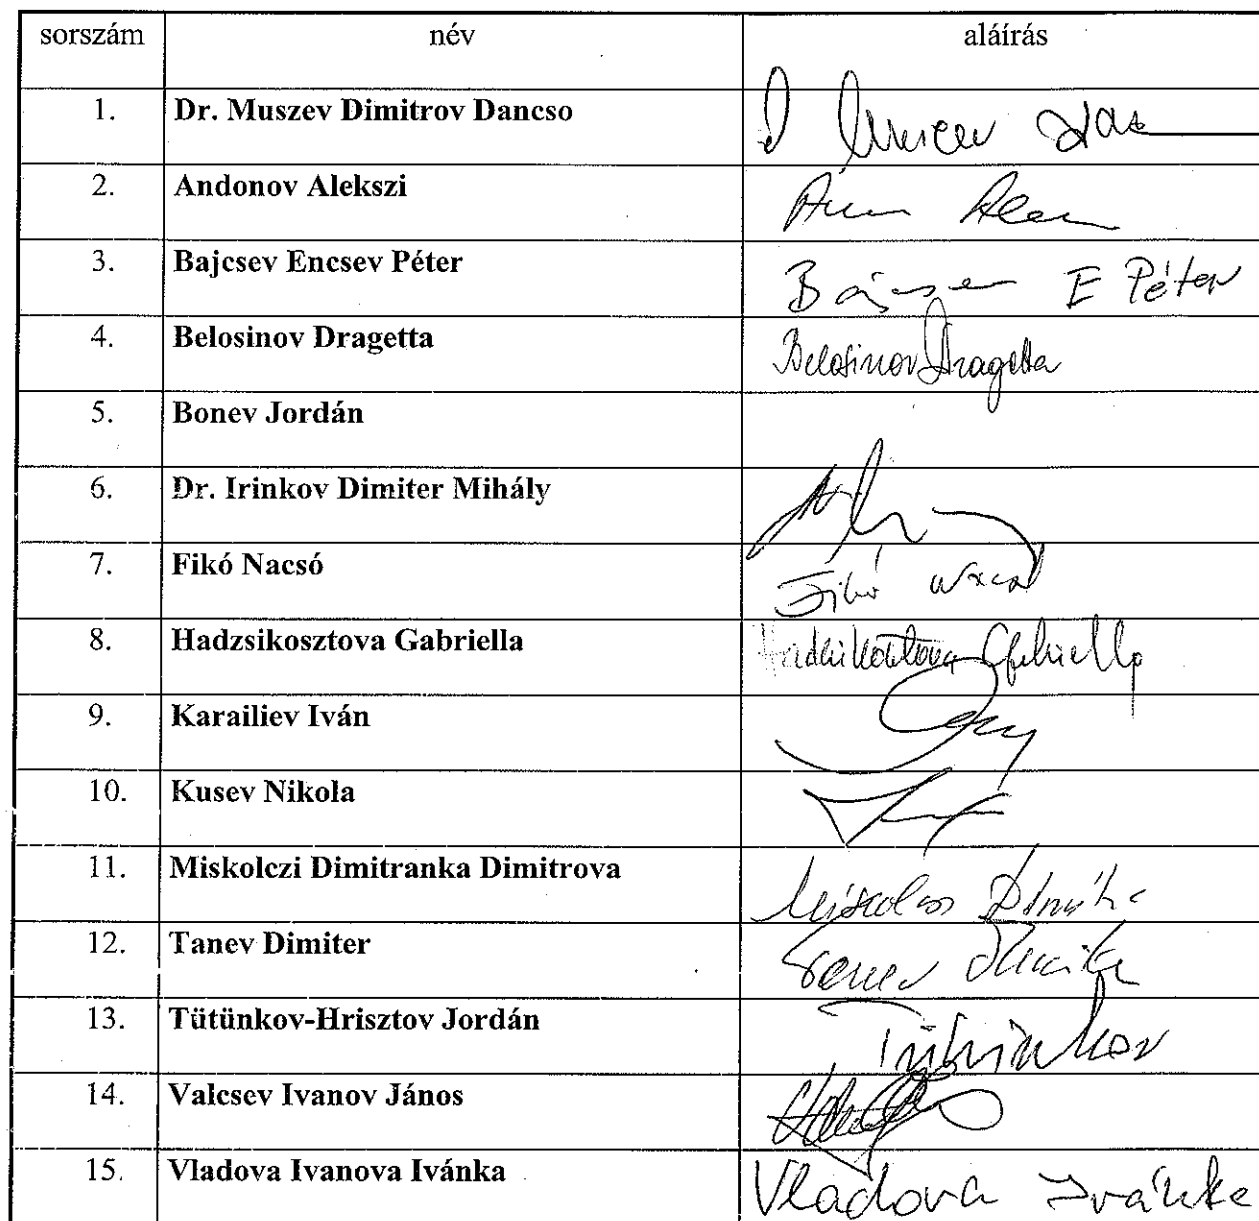 sorszám név aláírás
1. Dr. Muszev Dimitrov Dancso
2. Andonov Alekszi
3. Bajcsev Encsev Péter E Péter
4. Belosinov Dragetta Belosinov Dragetta
5. Bonev Jordán
6. Dr. Irinkov Dimiter Mihály
7. Fikó Nacsó Fikó
8. Hadzsikosztova Gabriella
9. Karailiev Iván
10. Kusev Nikola
11. Miskolczi Dimitranka Dimitrova
12. Tanev Dimiter
13. Tütünkov-Hrisztov Jordán Tütünkov
14. Valcsev Ivanov János
15. Vladova Ivanova Ivánka Vladova Ivánka